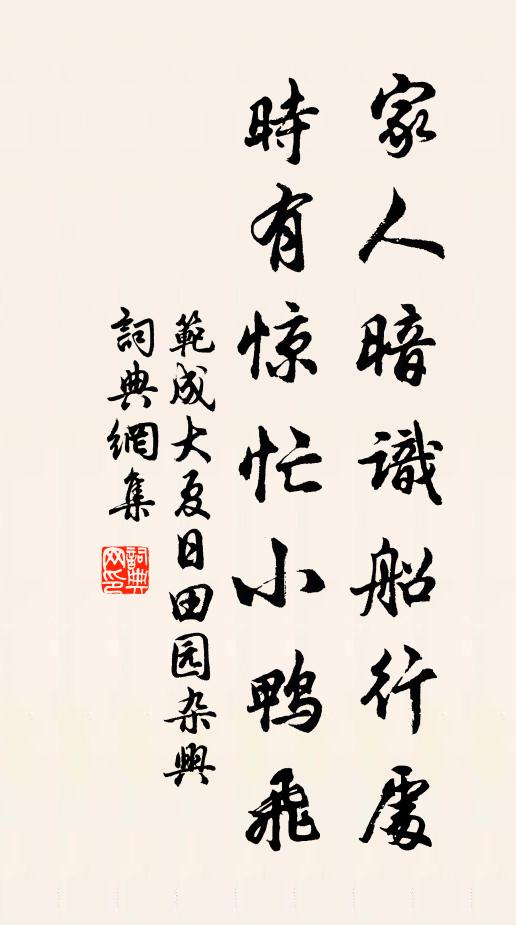 家人暗識船行處
時有惊忙小鴨飛
範成大夏日田园杂興
詞典網集
詞典网印